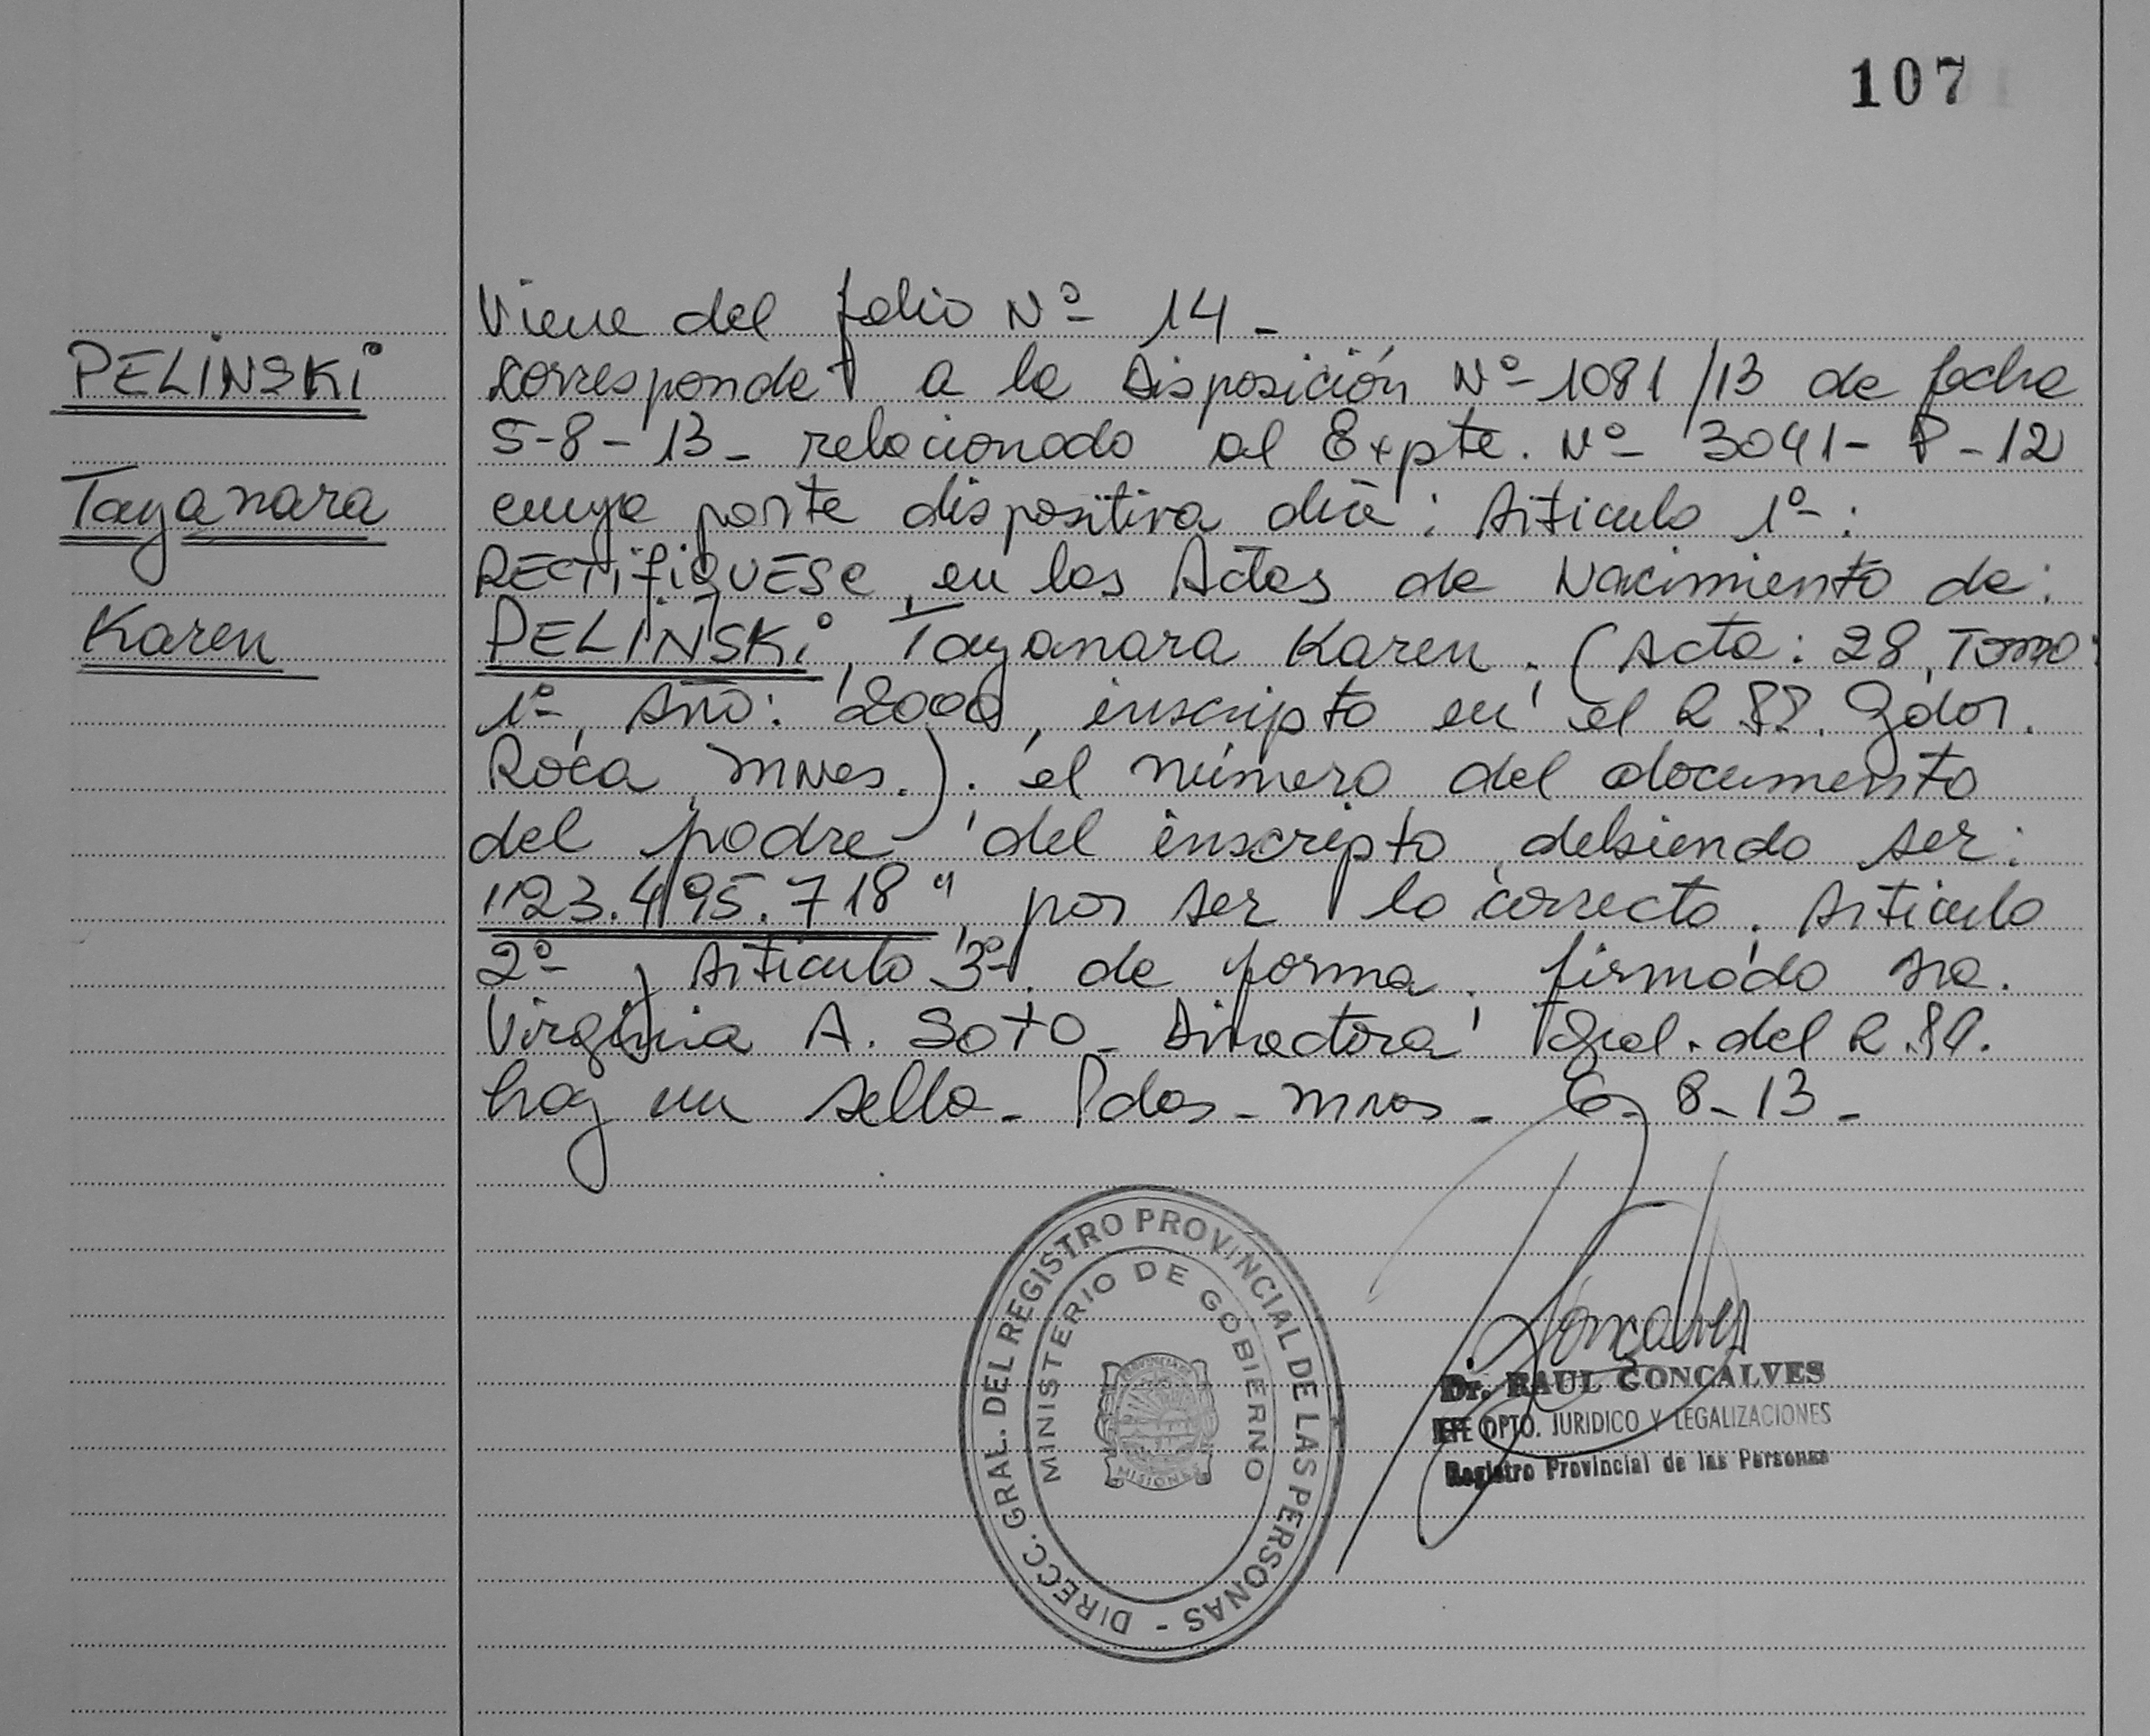 107
Viene del folio Nº 14 -
PELINSKI
corresponde a la Disposición Nº 1081/13 de fecha
5-8-13 - relacionado al Expte. Nº 3041 - P - 12
Tayanara
cuya parte dispositiva dice: Artículo 1º:
RECTIFIQUESE, en las Actas de Nacimiento de:
Karen
PELINSKI, Tayanara Karen. (Acta: 28, Tomo:
1º, Año: 2000, inscripto en el R.P.P. Gdor.
Roca, Mnes.). el número del documento
del padre del inscripto, debiendo ser:
"23.495.718", por ser lo correcto. Artículo
2º y Artículo 3º. de forma. firmado sra.
Virginia A. Soto - Directora Gral. del R.P.P.
hay un sello - Pdas - Mnes - 6-8-13 -
DIRECC. GRAL. DEL REGISTRO PROVINCIAL DE LAS PERSONAS -
MINISTERIO DE GOBIERNO
PROVINCIA DE
MISIONES
Dr. RAUL GONCALVES
JEFE DPTO. JURIDICO Y LEGALIZACIONES
Registro Provincial de las Personas